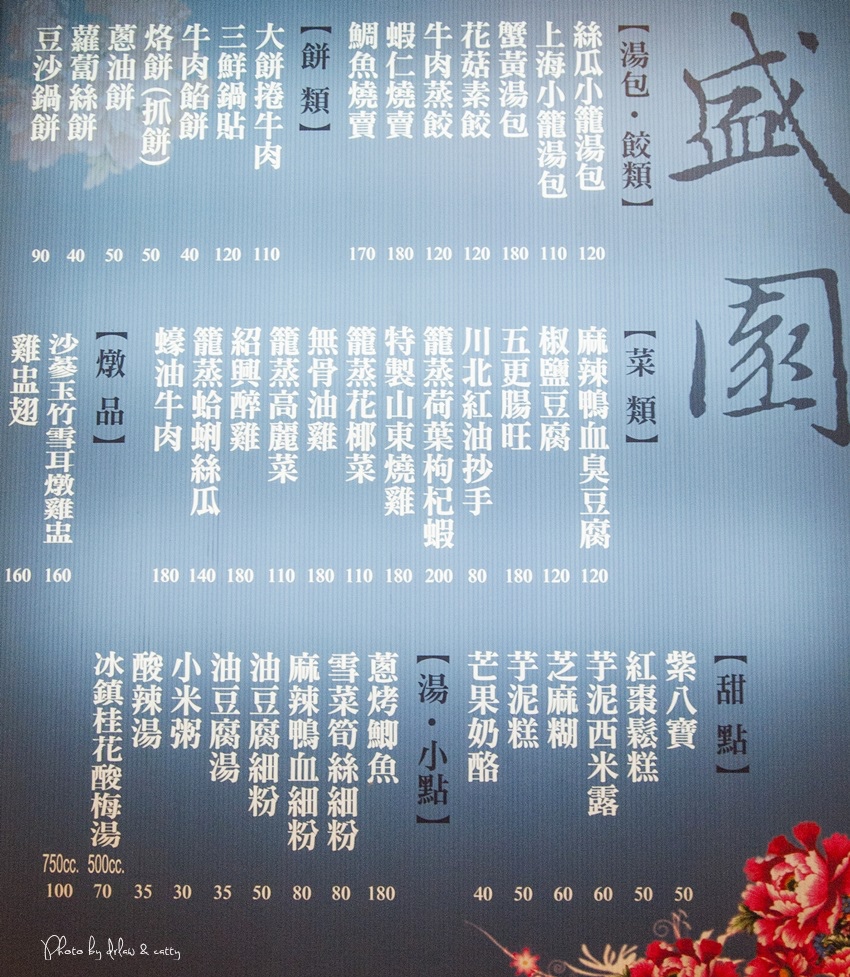 盛園
【湯包·餃類】
絲瓜小籠湯包 120
上海小籠湯包 110
蟹黃湯包 180
花菇素餃 120
牛肉蒸餃 120
蝦仁燒賣 180
鯛魚燒賣 170
【餅類】
大餅捲牛肉 110
三鮮鍋貼 120
牛肉餡餅 40
烙餅(抓餅) 50
蔥油餅 50
蘿蔔絲餅 40
豆沙鍋餅 90
【菜類】
麻辣鴨血臭豆腐 120
椒鹽豆腐 120
五更腸旺 180
川北紅油抄手 80
籠蒸荷葉枸杞蝦 200
特製山東燒雞 180
籠蒸花椰菜 110
無骨油雞 180
籠蒸高麗菜 110
紹興醉雞 180
籠蒸蛤蜊絲瓜 140
蠔油牛肉 180
【燉品】
沙蔘玉竹雪耳燉雞盅 160
雞盅翅 160
【甜點】
紫八寶 50
紅棗鬆糕 50
芋泥西米露 60
芝麻糊 60
芋泥糕 50
芒果奶酪 40
【湯·小點】
蔥烤鯽魚 180
雪菜筍絲細粉 80
麻辣鴨血細粉 80
油豆腐細粉 50
油豆腐湯 35
小米粥 30
酸辣湯 35
冰鎮桂花酸梅湯 500cc. 70
750cc. 100
Photo by drlaw & catty